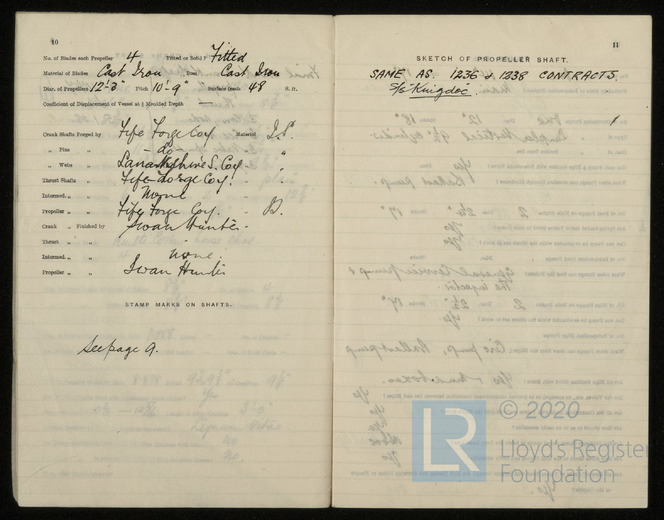 10
No. of Blades each Propeller 4 Fitted or Solid? Fitted
Material of Blades Cast Iron Boss Cast Iron
Diar. of Propellers 12'-3" Pitch 10'-9" Surface (each 48 S. ft.
Coefficient of Displacement of Vessel at ½ Moulded Depth —
Crank Shafts Forged by Fife Forge Coy Material I.S.
„ Pins „ - do - „
„ Webs „ Lanarkshire S. Coy. - „
Thrust Shafts „ Fife Forge Coy. „
Intermd. „ „ None
Propeller „ „ Fife Forge Coy.
Crank „ Finished by Swan Hunter
Thrust „ „
Intermd. „ „ None.
Propeller „ „ Swan Hunter
STAMP MARKS ON SHAFTS.
See page 9.
11
SKETCH OF PROPELLER SHAFT.
SAME AS 1236 & 1238 CONTRACTS
S/S "Kingdoc.
LR
© 2020
Lloyd's Register
Foundation